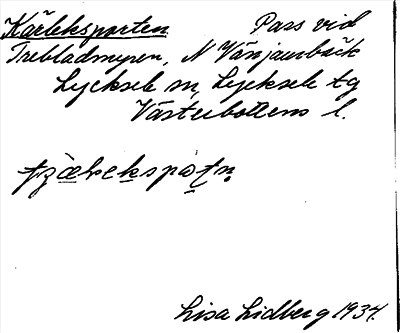 Kärleksporten Pass vid
Trebladmyren, N Vänjaurbäck
Lycksele sn, Lycksele tg
Västerbottens l.
Lisa Lidberg 1934.